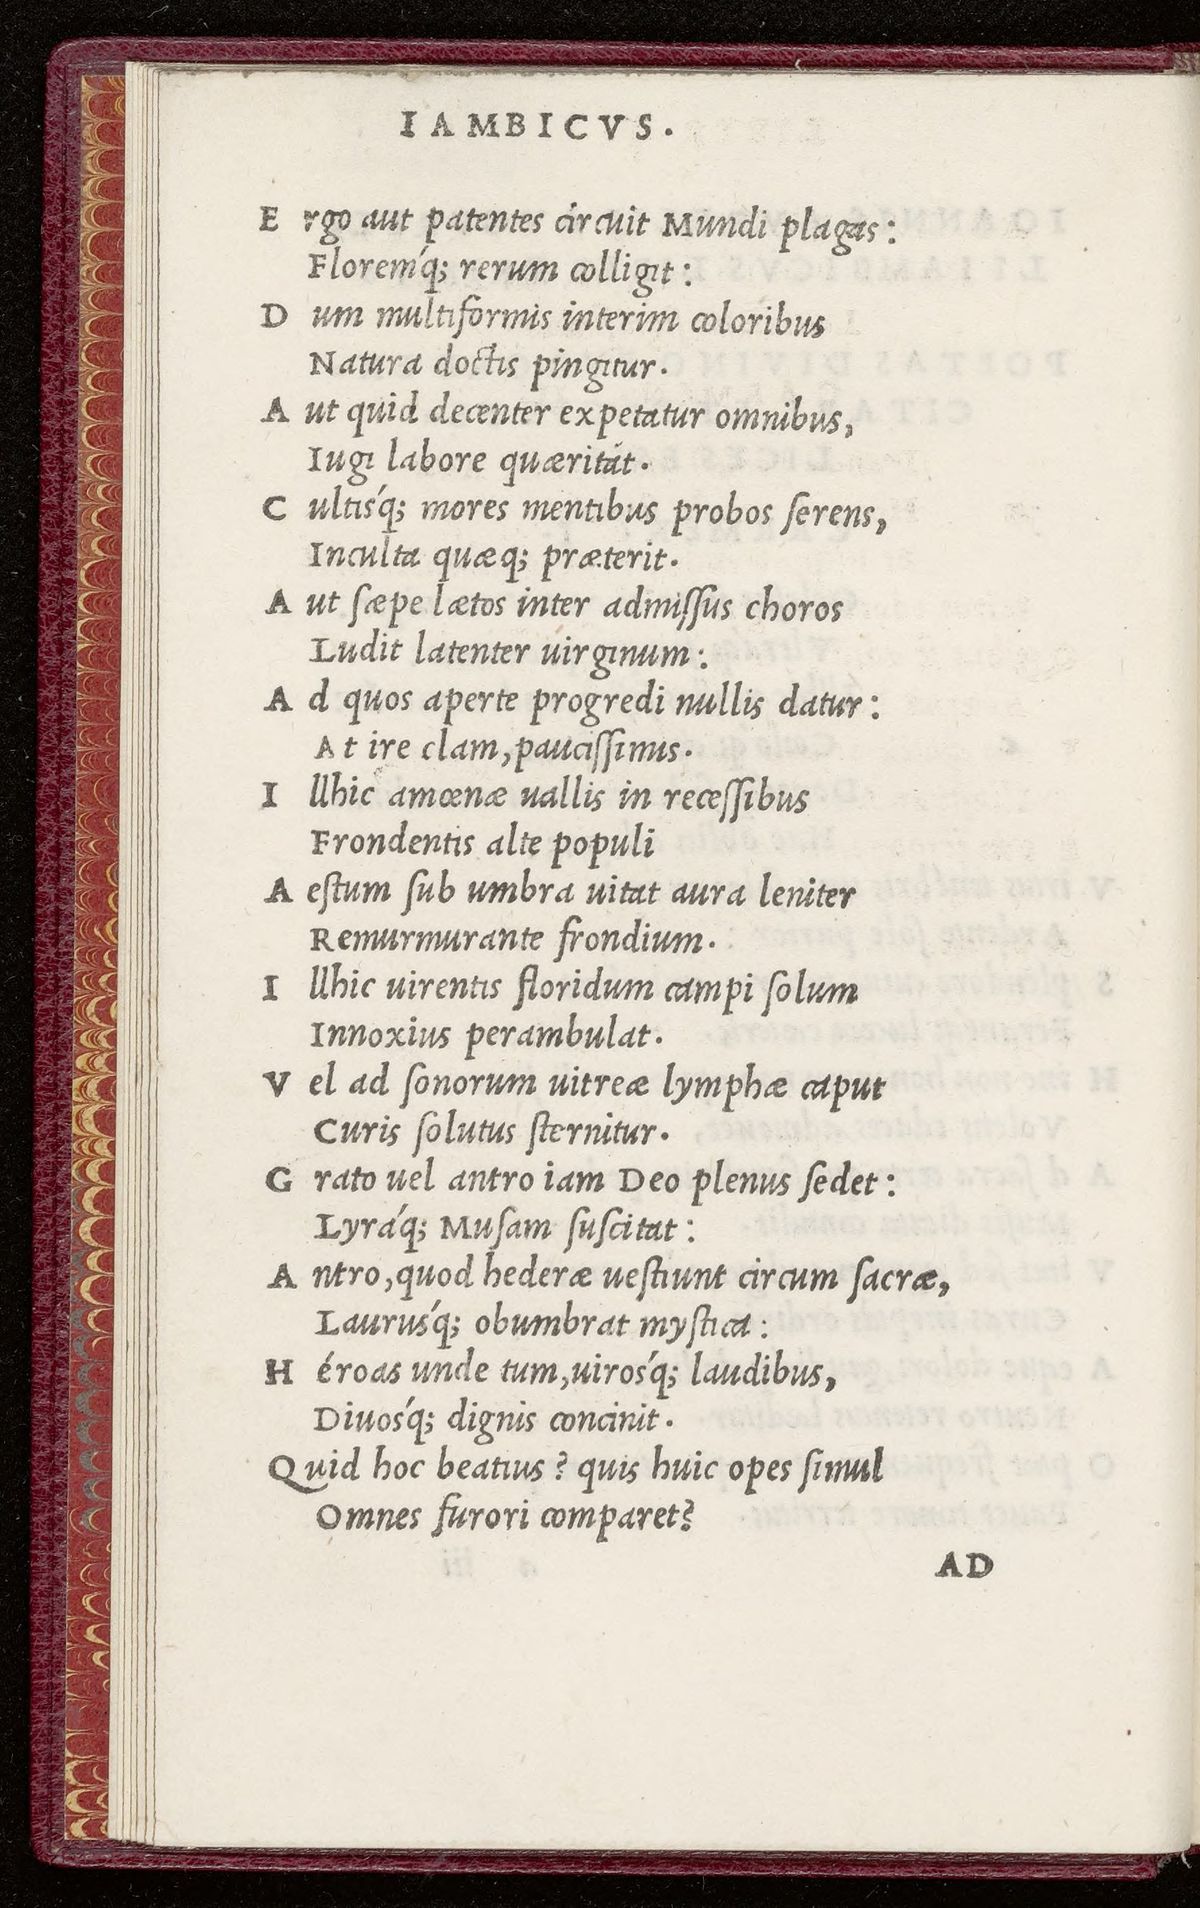 IAMBICVS.
E rgo aut patentes circuit Mundi plagas:
Florem´q; rerum colligit:
D um multiformis interim coloribus
Natura doctis pingitur.
A ut quid decenter expetatur omnibus,
Iugi labore quæritát.
C ultis´q; mores mentibus probos ſerens,
Inculta quæq; præterit.
A ut ſæpe lætos inter admiſſus choros
Ludit latenter uirginum:
A d quos aperte progredi nullis datur:
At ire clam, pauciſſimus.
I llhic amœnæ uallis in receſſibus
Frondentis alte populi
A eſtum ſub umbra uitat aura leniter
Remurmurante frondium.
I llhic uirentis floridum campi ſolum
Innoxius perambulat.
V el ad ſonorum uitreæ lymphæ caput
Curis ſolutus ſternitur.
G rato uel antro iam Deo plenus ſedet:
Lyra´q; Muſam ſuſcitat:
A ntro, quod hederæ ueſtiunt circum ſacræ,
Laurus´q; obumbrat myſtica:
H éroas unde tum, uiros´q; laudibus,
Diuos´q; dignis concinit.
Quid hoc beatius? quis huic opes ſimul
Omnes furori comparet?
AD